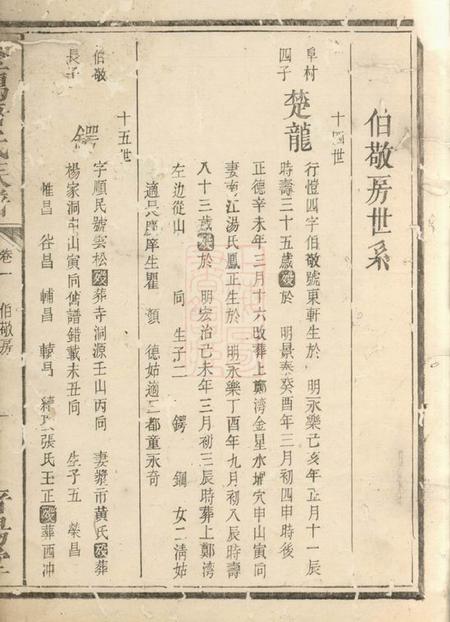 伯敬房世系
十四世
阜村
四子
楚龍
行愷四字伯敬號東軒生於 明永樂己亥年正月十一辰
時壽三十五歲歿於 明景泰癸酉年三月初四申時後
正德辛未年三月十六改葬上鄭湾金星水堀穴申山寅向
妻南江湯氏鳳正生於 明永樂丁酉年九月初八辰時壽
八十三歲歿於 明宏治己未年三月初三辰時葬上鄭湾
左边從山 向 生子二 鍔 鋼 女二清姑
適 生瞿 顏 德姑適二都童永奇
十五世
伯敬
長子
鍔
字順民號雲松歿葬寺洞源壬山丙向 妻 市黃氏歿葬
楊家洞申山寅向舊譜錯載未丑向 生子五 榮昌
惟昌 谷昌 輔昌 張氏玉正歿葬西冲
卷一 伯敬房